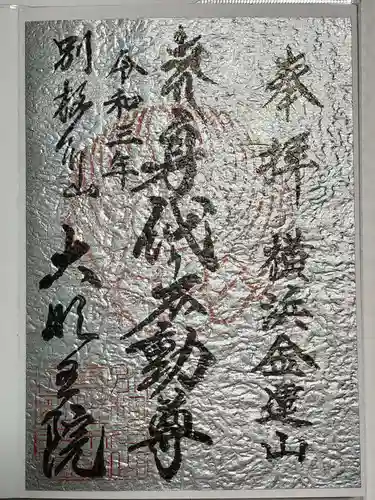 奉拝 横浜金蓮山
身代り不動尊
令和三年
別格本山 大明王院